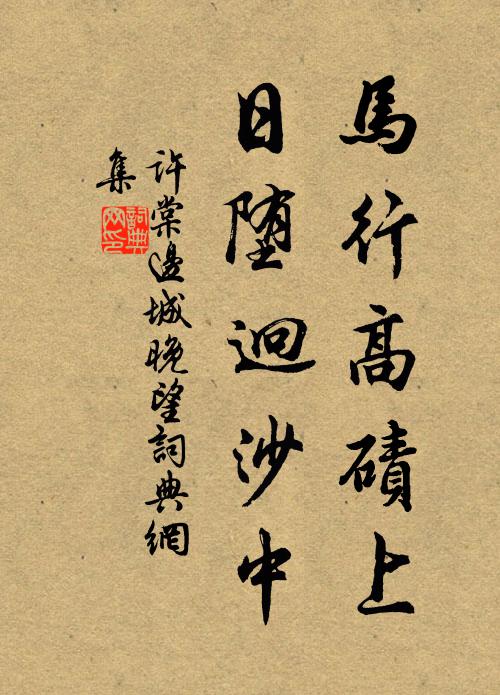 馬行高磧上
日堕迥沙中
許棠邊城晚望詞典網
集
詞典
网印